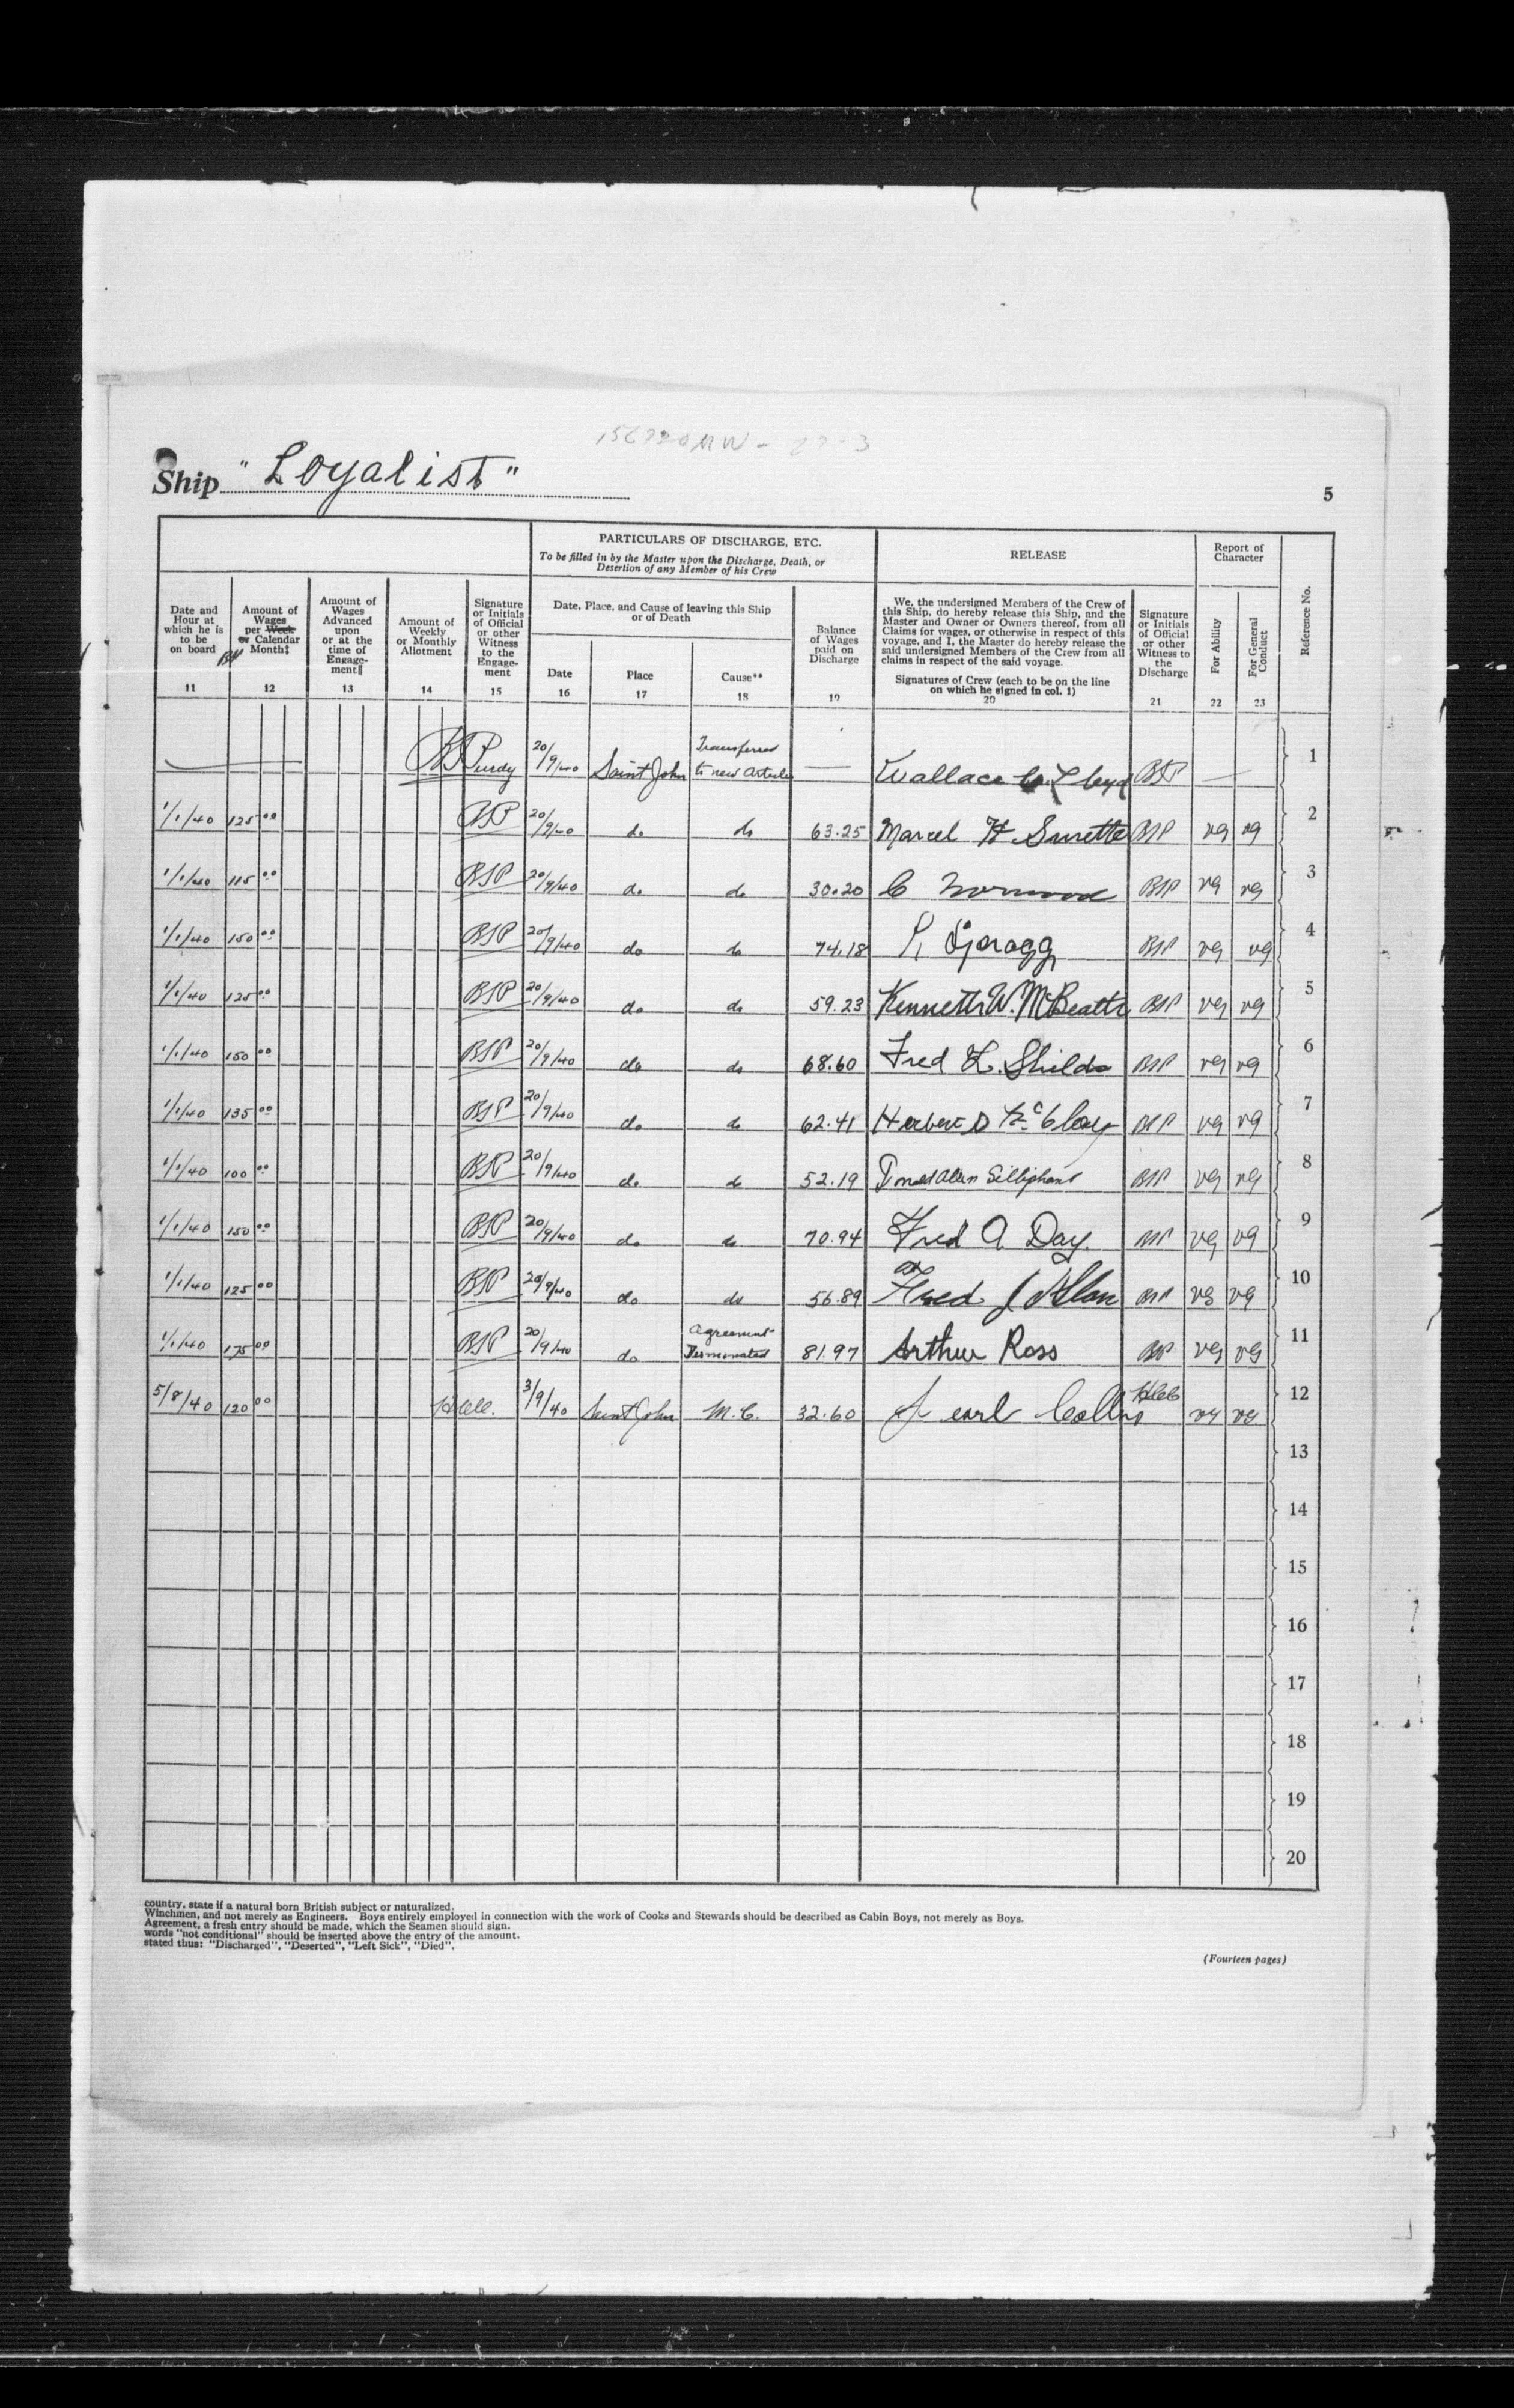 Ship "Loyalist"
5
PARTICULARS OF DISCHARGE, ETC.
To be filled in by the Master upon the Discharge, Death, or
Desertion of any Member of his Crew
RELEASE
Report of
Character
Reference No.
Date and
Hour at
which he is
to be
on board
11
Amount of
Wages
per Week
or Calendar
Month‡
12
Amount of
Wages
Advanced
upon
or at the
time of
Engage-
ment‖
13
Amount of
Weekly
or Monthly
Allotment
14
Signature
or Initials
of Official
or other
Witness
to the
Engage-
ment
15
Date, Place, and Cause of leaving this Ship
or of Death
Date
16
Place
17
Cause**
18
Balance
of Wages
paid on
Discharge
19
We, the undersigned Members of the Crew of
this Ship, do hereby release this Ship, and the
Master and Owner or Owners thereof, from all
Claims for wages, or otherwise in respect of this
voyage, and I, the Master do hereby release the
said undersigned Members of the Crew from all
claims in respect of the said voyage.
Signatures of Crew (each to be on the line
on which he signed in col. 1)
20
Signature
or Initials
of Official
or other
Witness to
the
Discharge
21
For Ability
22
For General
Conduct
23
BSPurdy 20/9/40 Saint John Transferred to new Article — Wallace Lloyd BSP — 1
1/1/40 125 00 BSP 20/9/40 do do 63.25 Marcel H Surette BSP vg vg 2
1/1/40 115 00 BSP 20/9/40 do do 30.20 C Norwood BSP vg vg 3
1/1/40 150 00 BSP 20/9/40 do do 74.18 Spragg BSP vg vg 4
1/1/40 125 00 BSP 20/9/40 do do 59.23 Kenneth W. McBeath BSP vg vg 5
1/1/40 150 00 BSP 20/9/40 do do 68.60 Fred L. Shilds BSP vg vg 6
1/1/40 135 00 BSP 20/9/40 do do 62.41 Herbert D McClay BSP vg vg 7
1/1/40 100 00 BSP 20/9/40 do do 52.19 Allen Silliphant BSP vg vg 8
1/1/40 150 00 BSP 20/9/40 do do 70.94 Fred A Day. BSP vg vg 9
1/1/40 125 00 BSP 20/9/40 do do 56.89 Fred J BSP vg vg 10
1/1/40 175 00 BSP 20/9/40 do Agreement Terminated 81.97 Arthur Ross BSP vg vg 11
5/8/40 120 00 3/9/40 Saint John M.C. 32.60 J earl Collins vg vg 12
13
14
15
16
17
18
19
20
country, state if a natural born British subject or naturalized.
Winchmen, and not merely as Engineers. Boys entirely employed in connection with the work of Cooks and Stewards should be described as Cabin Boys, not merely as Boys.
Agreement, a fresh entry should be made, which the Seamen should sign.
words "not conditional" should be inserted above the entry of the amount.
stated thus: "Discharged", "Deserted", "Left Sick", "Died".
(Fourteen pages)